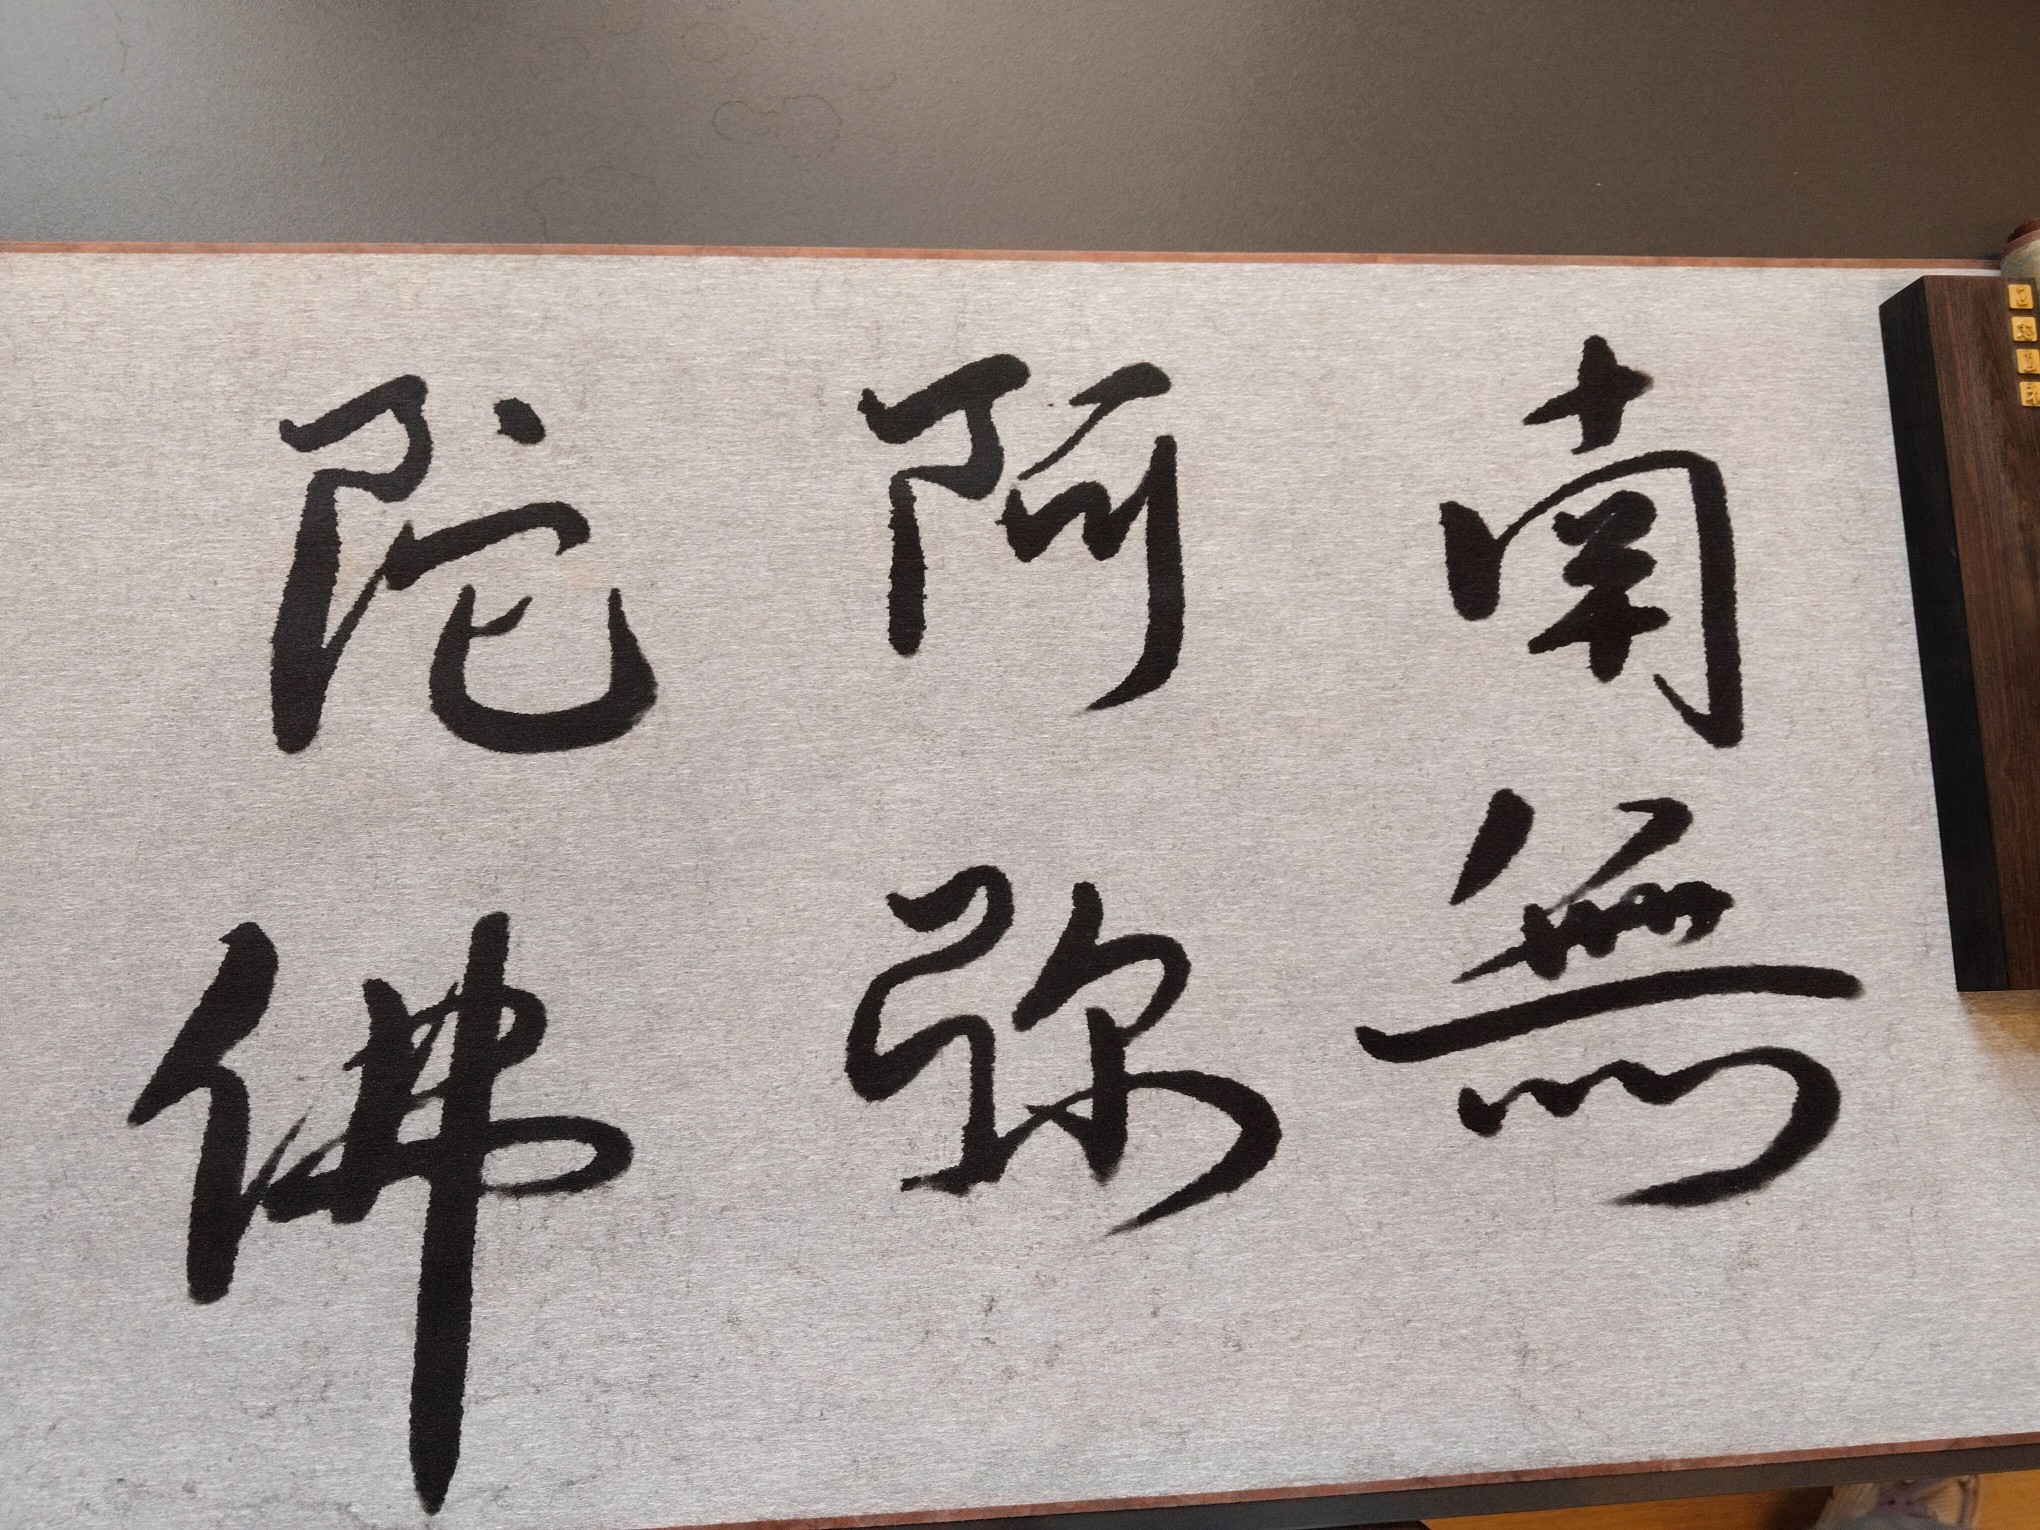 南無
阿弥
陀佛